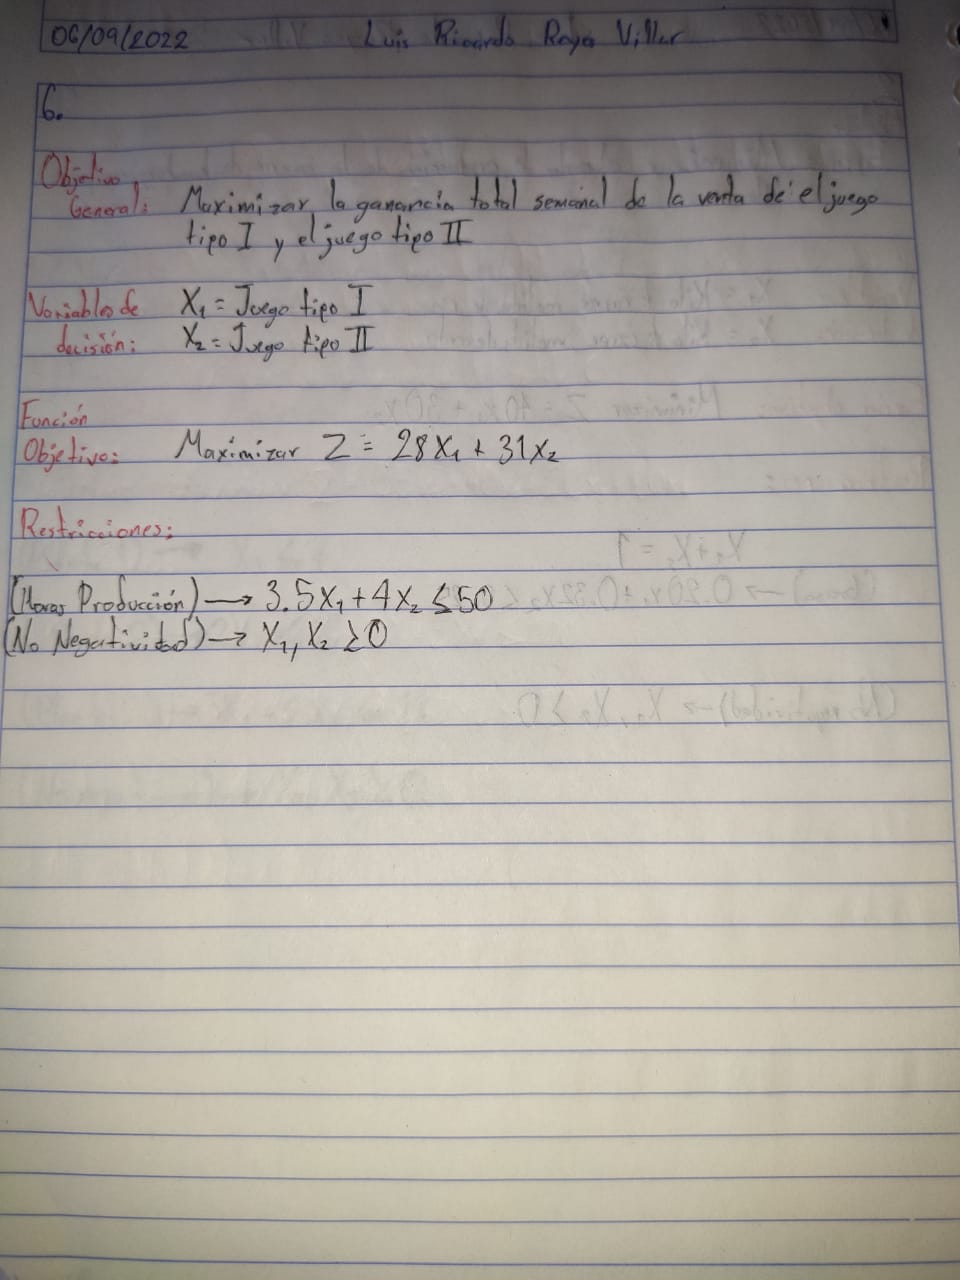 06/09/2022 Luis Ricardo Raya Viller
6.
Objetivo
General: Maximizar la ganancia total semanal de la venta de el juego
tipo I y el juego tipo II
Variables de X₁ = Juego tipo I
decisión: X₂ = Juego tipo II
Función
Objetivo: Maximizar Z = 28X₁ + 31X₂
Restricciones:
(Horas Producción) → 3.5X₁ + 4X₂ ≤ 50
(No Negatividad) → X₁, X₂ ≥ 0